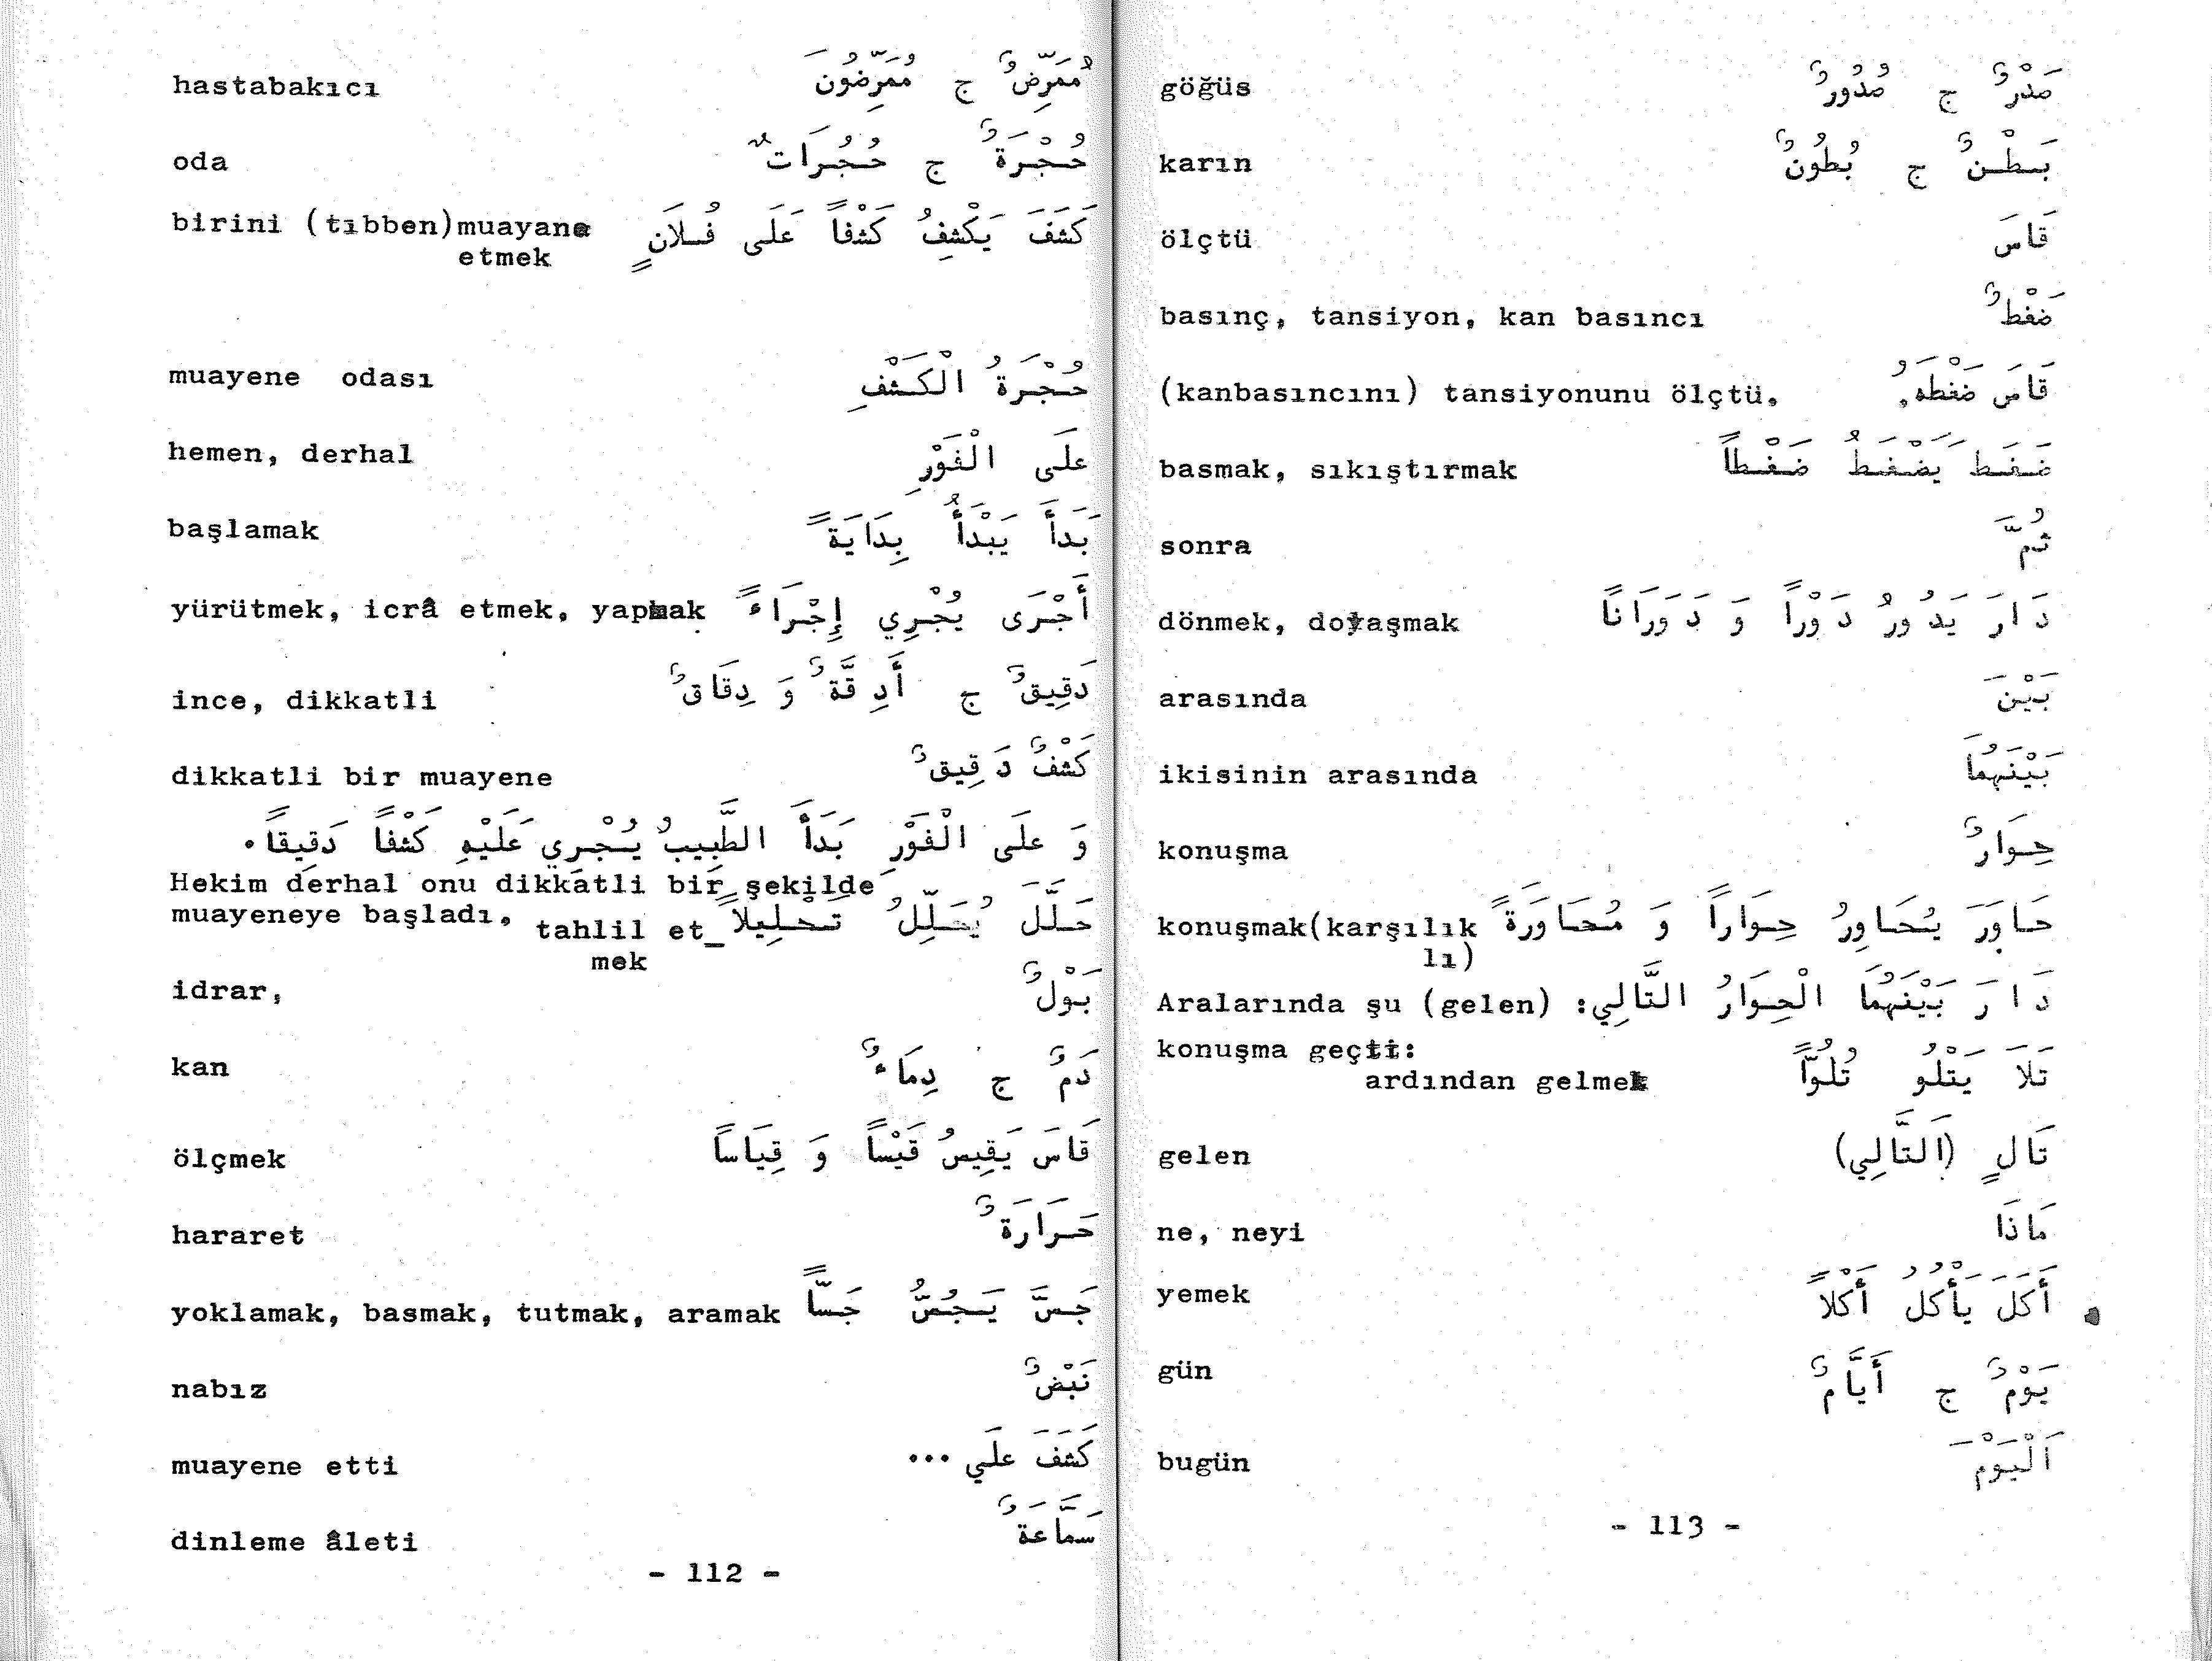 hastabakıcı مُمَرِّضٌ ج مُمَرِّضُونَ
oda حُجْرَةٌ ج حُجُرَاتٌ
birini (tıbben)muayane كَشَفَ يَكْشِفُ كَشْفاً عَلَى فُلاَنٍ
etmek
muayene odası حُجْرَةُ الْكَشْفِ
hemen, derhal عَلَى الْفَوْرِ
başlamak بَدَأَ يَبْدَأُ بِدَايَةً
yürütmek, icrâ etmek, yapmak أَجْرَى يُجْرِي إِجْرَاءً
ince, dikkatli دَقِيقٌ ج أَدِقَّةٌ وَ دِقَاقٌ
dikkatli bir muayene كَشْفٌ دَقِيقٌ
وَ عَلَى الْفَوْرِ بَدَأَ الطَّبِيبُ يُجْرِي عَلَيْهِ كَشْفاً دَقِيقاً.
Hekim derhal onu dikkatli bir şekilde
muayeneye başladı. tahlil et_ حَلَّلَ يُحَلِّلُ تَحْلِيلاً
mek
idrar, بَوْلٌ
kan دَمٌ ج دِمَاءٌ
ölçmek قَاسَ يَقِيسُ قَيْساً وَ قِيَاساً
hararet حَرَارَةٌ
yoklamak, basmak, tutmak, aramak جَسَّ يَجُسُّ جَسًّا
nabız نَبْضٌ
muayene etti كَشَفَ عَلَي ...
dinleme âleti سَمَّاعَةٌ
- 112 -
göğüs صَدْرٌ ج صُدُورٌ
karın بَطْنٌ ج بُطُونٌ
ölçtü قَاسَ
basınç, tansiyon, kan basıncı ضَغْطٌ
(kanbasıncını) tansiyonunu ölçtü. قَاسَ ضَغْطَهُ.
basmak, sıkıştırmak ضَغَطَ يَضْغَطُ ضَغْطاً
sonra ثُمَّ
dönmek, dolaşmak دَارَ يَدُورُ دَوْراً وَ دَوَرَانًا
arasında بَيْنَ
ikisinin arasında بَيْنَهُمَا
konuşma حِوَارٌ
konuşmak(karşılık حَاوَرَ يُحَاوِرُ حِوَاراً وَ مُحَاوَرَةً
lı)
Aralarında şu (gelen) دَارَ بَيْنَهُمَا الْحِوَارُ التَّالِي:
konuşma geçti:
ardından gelmek تَلاَ يَتْلُو تُلُوًّا
gelen تَالٍ (اَلتَّالِي)
ne, neyi مَاذَا
yemek أَكَلَ يَأْكُلُ أَكْلاً
gün يَوْمٌ ج أَيَّامٌ
bugün اَلْيَوْمَ
- 113 -